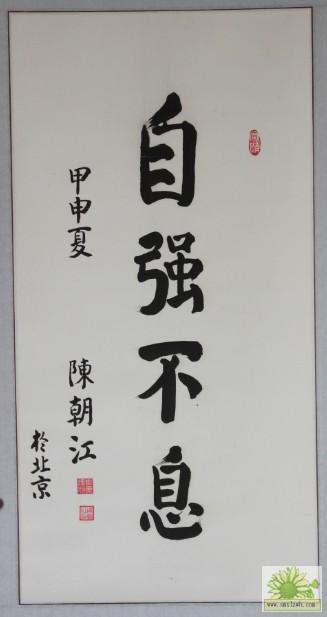 自强不息
甲申夏
陳朝江
於北京